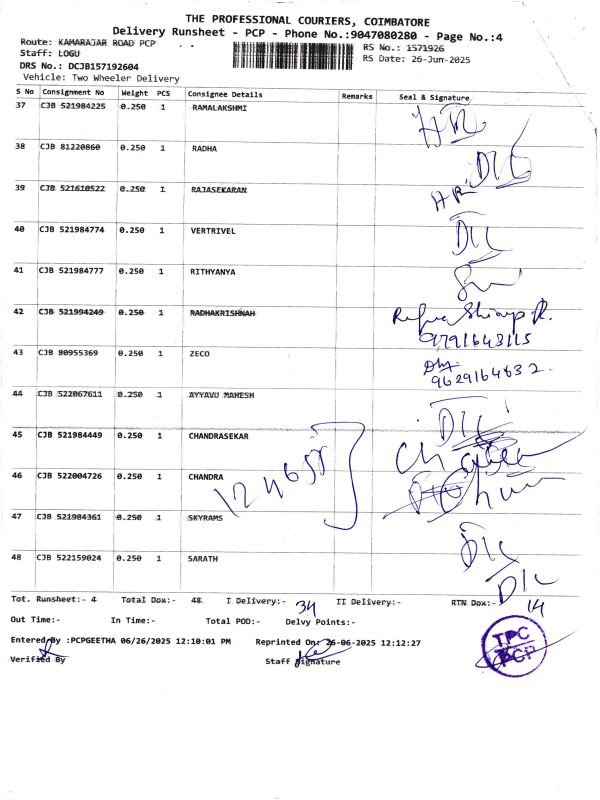 THE PROFESSIONAL COURIERS, COIMBATORE
Delivery Runsheet - PCP - Phone No.:9047080280 - Page No.:4
Route: KAMARAJAR ROAD PCP
RS No.: 1571926
Staff: LOGU
RS Date: 26-Jun-2025
DRS No.: DCJB157192604
Vehicle: Two Wheeler Delivery
S No Consignment No Weight PCS Consignee Details Remarks Seal & Signature
37 CJB 521984225 0.250 1 RAMALAKSHMI
38 CJB 81220860 0.250 1 RADHA
D/L
39 CJB 521610522 0.250 1 RAJASEKARAN
40 CJB 521984774 0.250 1 VERTRIVEL
D/L
41 CJB 521984777 0.250 1 RITHYANYA
42 CJB 521994249 0.250 1 RADHAKRISHNAH
9791643115
43 CJB 80955369 0.250 1 ZECO
9629164632
44 CJB 522067611 0.250 1 AYYAVU MAHESH
D/L
45 CJB 521984449 0.250 1 CHANDRASEKAR
46 CJB 522004726 0.250 1 CHANDRA
47 CJB 521984361 0.250 1 SKYRAMS
D/L
48 CJB 522159024 0.250 1 SARATH
D/L
Tot. Runsheet:- 4 Total Dox:- 48 I Delivery:- 34 II Delivery:- RTN Dox:- 14
Out Time:- In Time:- Total POD:- Delvy Points:-
Entered By :PCPGEETHA 06/26/2025 12:10:01 PM Reprinted On: 26-06-2025 12:12:27
Verified By Staff Signature
TPC
PCP